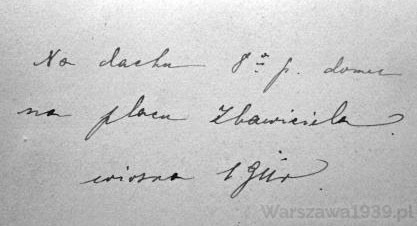 Na dachu 8º p. domu
na placu Zbawiciela
wiosna
Warszawa1939.pl